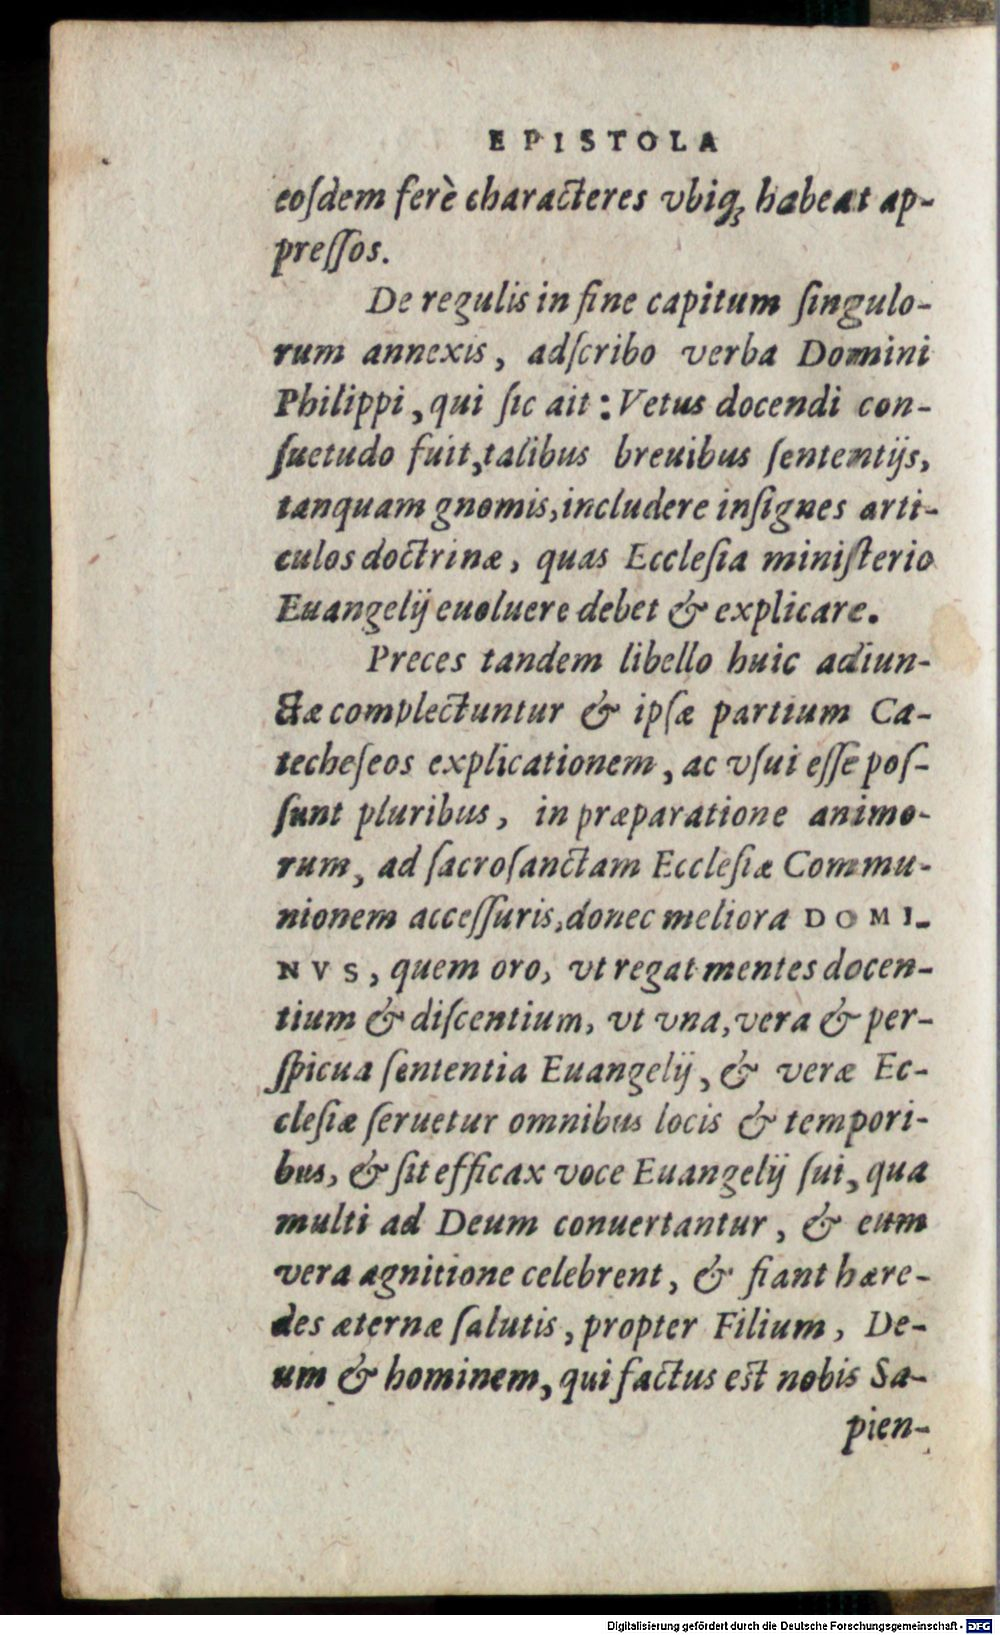 EPISTOLA
eoſdem ferè characteres vbiq́; habeat ap-
preſſos.
De regulis in fine capitum ſingulo-
rum annexis, adſcribo verba Domini
Philippi, qui ſic ait: Vetus docendi con-
ſuetudo fuit, talibus breuibus ſententijs,
tanquam gnomis, includere inſignes arti-
culos doctrinæ, quas Eccleſia miniſterio
Euangelij euoluere debet & explicare.
Preces tandem libello huic adiun-
ctæ complectuntur & ipſæ partium Ca-
techeſeos explicationem, ac vſui eſſe poſ-
ſunt pluribus, in præparatione animo-
rum, ad ſacroſanctam Eccleſiæ Commu-
nionem acceſſuris, donec meliora DOMI-
NVS, quem oro, vt regat mentes docen-
tium & diſcentium, vt vna, vera & per-
ſpicua ſententia Euangelij, & veræ Ec-
cleſiæ ſeruetur omnibus locis & tempori-
bus, & ſit efficax voce Euangelij ſui, qua
multi ad Deum conuertantur, & eum
vera agnitione celebrent, & fiant hære-
des æternæ ſalutis, propter Filium, De-
um & hominem, qui factus eſt nobis Sa-
pien-
Digitalisierung gefördert durch die Deutsche Forschungsgemeinschaft - DFG